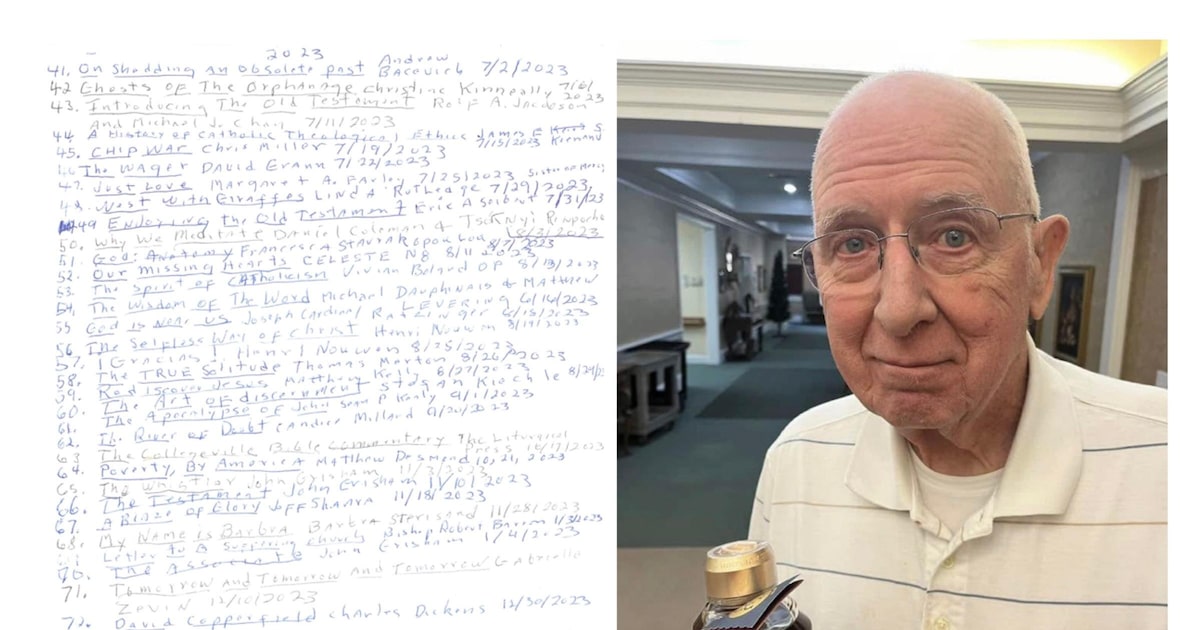 2023
41. On Shedding An Obsolete past Andrew Bacevich 7/2/2023
42 Ghosts Of The Orphanage Christine Kenneally 7/6/2023
43. Introducing The Old Testament Rolf A. Jacobson
And Michael J. Chan 7/11/2023
44 A History of Catholic Theological Ethics James F S. Keenan
7/15/2023
45. CHIP WAR Chris Miller 7/19/2023
The WAGER DAVID Grann 7/22/2023
47. Just Love Margaret A. Farley 7/25/2023
48. West With Giraffes LINDA Rutledge 7/29/2023
49 Enjoying the Old Testament Eric A Seibert 7/31/23
50. Why We Meditate Daniel Goleman & Tsoknyi Rinpoche
8/3/2023
51. God: Anatomy Francesca Stavrakopoulou 8/7/2023
52. Our Missing Hearts CELESTE NG 8/11 2023
53. The Spirit of Catholicism Vivian Boland OP 8/13/2023
54. The Wisdom of The Word Michael Dauphinais & Matthew
LEVERING
55 God is Near Us Joseph Cardinal Ratzinger
56. The Selfless Way of Christ Henri Nouwen 8/19/2023
57. Gracias! Henri Nouwen 8/25/2023
58. The TRUE Solitude Thomas Merton 8/26/2023
59. Rediscover Jesus Matthew Kelly 8/27/2023
60. The Art of discernment Stefan Kiechle
61. The Apocalypse of John Sean P Kealy 9/1/2023
62. The River of Doubt Candice Millard 9/20/2023
63 The Collegeville Bible Commentary The Liturgical
Press 10/17/2023
64. Poverty, By America Matthew Desmond 10, 21, 2023
65. The Whistler John Grisham 11/3/2023
66. The Testament John Grisham 11/10/2023
67. A Blaze of Glory Jeff Shaara 11/18/2023
68. My Name is Barbra Barbra Streisand 11/28/2023
Letter to A Suffering Church Bishop Robert Barron
70. The Associate John Grisham 1/4/2023
71. Tomorrow And Tomorrow And Tomorrow Gabrielle
Zevin 12/10/2023
72. David Copperfield Charles Dickens 12/30/2023